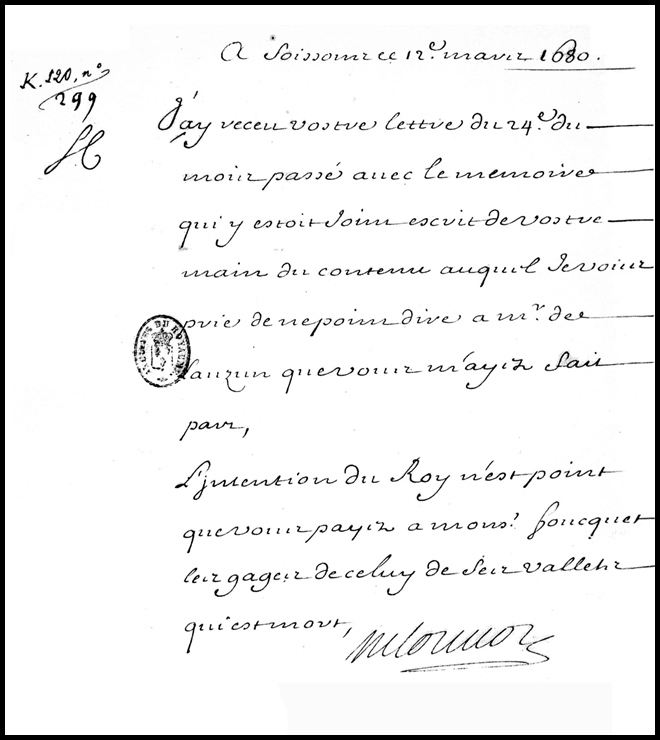 A Soissons ce 12e. mars 1680.
K. 120, n°
299
J'ay receu vostre lettre du 24e. du
mois passé avec le memoire
qui y estoit Joint escrit de vostre
main du contenu auquel Je vous
prie de ne point dire a mr. de
Lauzun que vous m'ayez fait
part,
L'jntention du Roy n'est point
que vous payiez a monsr. foucquet
les gages de celuy de Ses vallets
qui est mort,